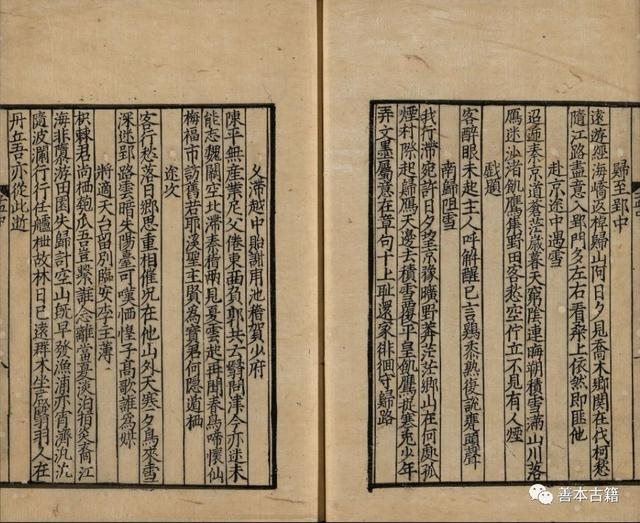 歸至郢中
遠遊經海嶠返棹歸山阿日夕見喬木鄉關在伐柯愁
隨江路盡喜入郢門夕左右看桑土依然即匪他
赴京途中遇雪
迢遞秦京道蒼茫歲暮天窮陰連晦朔積雪滿山川落
鴈迷沙渚飢鷹集野田客愁空佇立不見有人煙
戲題
客醉眠未起主人呼解酲已言鷄黍熟復說甕頭聲
南歸阻雪
我行滯宛許日夕望京豫曠野莽茫茫鄉山在何處孤
煙村際起歸鴈天邊去積雪覆平皐飢鷹捉寒兔少年
弄文墨屬意在章句十上耻還家徘徊守歸路
久滯越中貽謝池稽賀少府
陳平無産業尼父倦東西負郭共云翳問津今亦迷未
能忘魏闕空此滯秦稽兩見夏雲起再聞春鳥啼懷仙
梅福市訪舊若耶溪聖主賢為寳君何隱遁栖
途次
客行愁落日鄉思重相催况在他山外天寒夕鳥來雪
深迷郢路雲暗失陽臺可嘆悽惶子高歌誰為媒
將適天台留別臨安李主簿
枳棘君尚栖匏瓜吾豈繫誰念離當夏漂泊指炎裔江
海非墮遊田園失歸計空山既早發漁浦亦宵濟汎汎
隨波瀾行行任艫枻故林日已遠群木坐成翳羽人在
丹丘吾亦從此逝
善本古籍